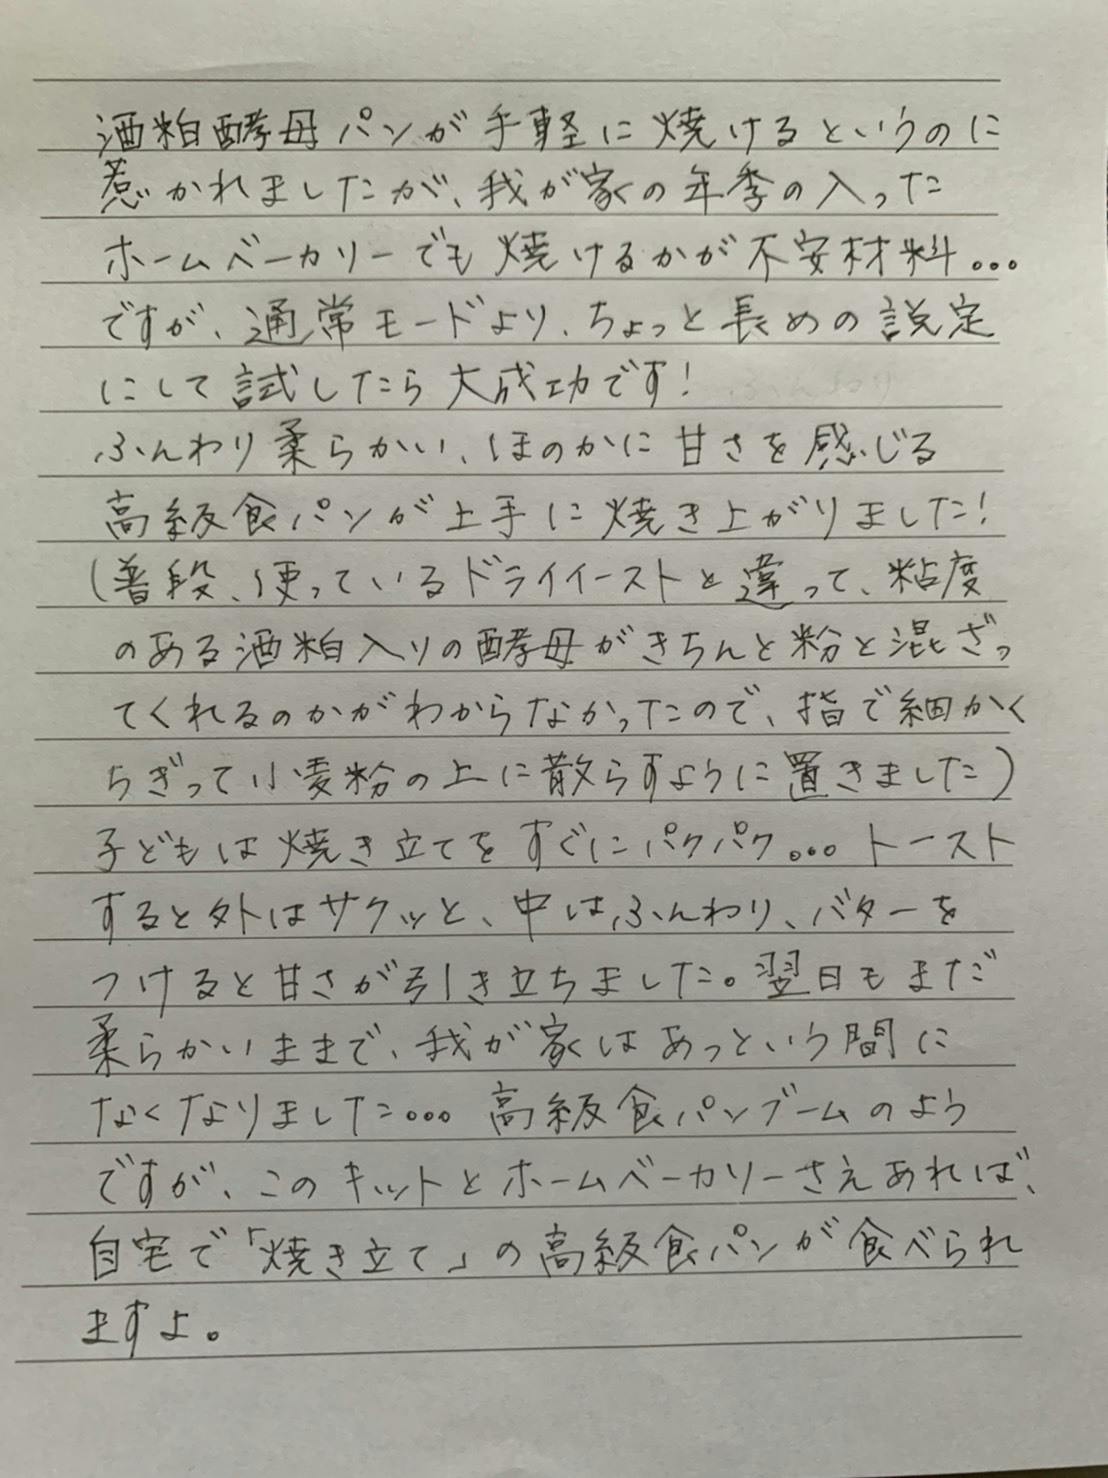 酒粕酵母パンが手軽に焼けるというのに
惹かれましたが、我が家の年季の入った
ホームベーカリーでも焼けるかが不安材料...
ですが、通常モードより、ちょっと長めの設定
にして試したら大成功です!
ふんわり柔らかい、ほのかに甘さを感じる
高級食パンが上手に焼き上がりました!
(普段、使っているドライイーストと違って、粘度
のある酒粕入りの酵母がきちんと粉と混ざっ
てくれるのかがわからなかったので、指で細かく
ちぎって小麦粉の上に散らすように置きました)
子どもは焼き立てをすぐにパクパク...トースト
すると外はサクッと、中はふんわり、バターを
つけると甘さが引き立ちました。翌日もまだ
柔らかいままで、我が家はあっという間に
なくなりました...高級食パンブームのよう
ですが、このキットとホームベーカリーさえあれば、
自宅で「焼き立て」の高級食パンが食べられ
ますよ。